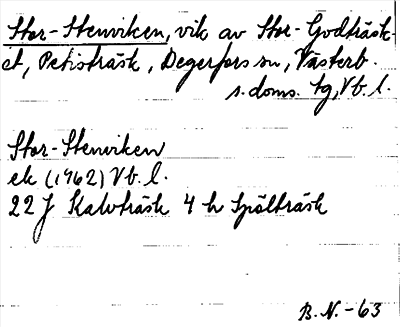 Stor-Stenviken, vik av Stor-Godträsk-
et, Petisträsk, Degerfors sn, Västerb.
s. doms. tg, Vb. l.
Stor-Stenviken
ek (1962) Vb. l.
22 J Kalvträsk 4 h Spölträsk
B. N. -63